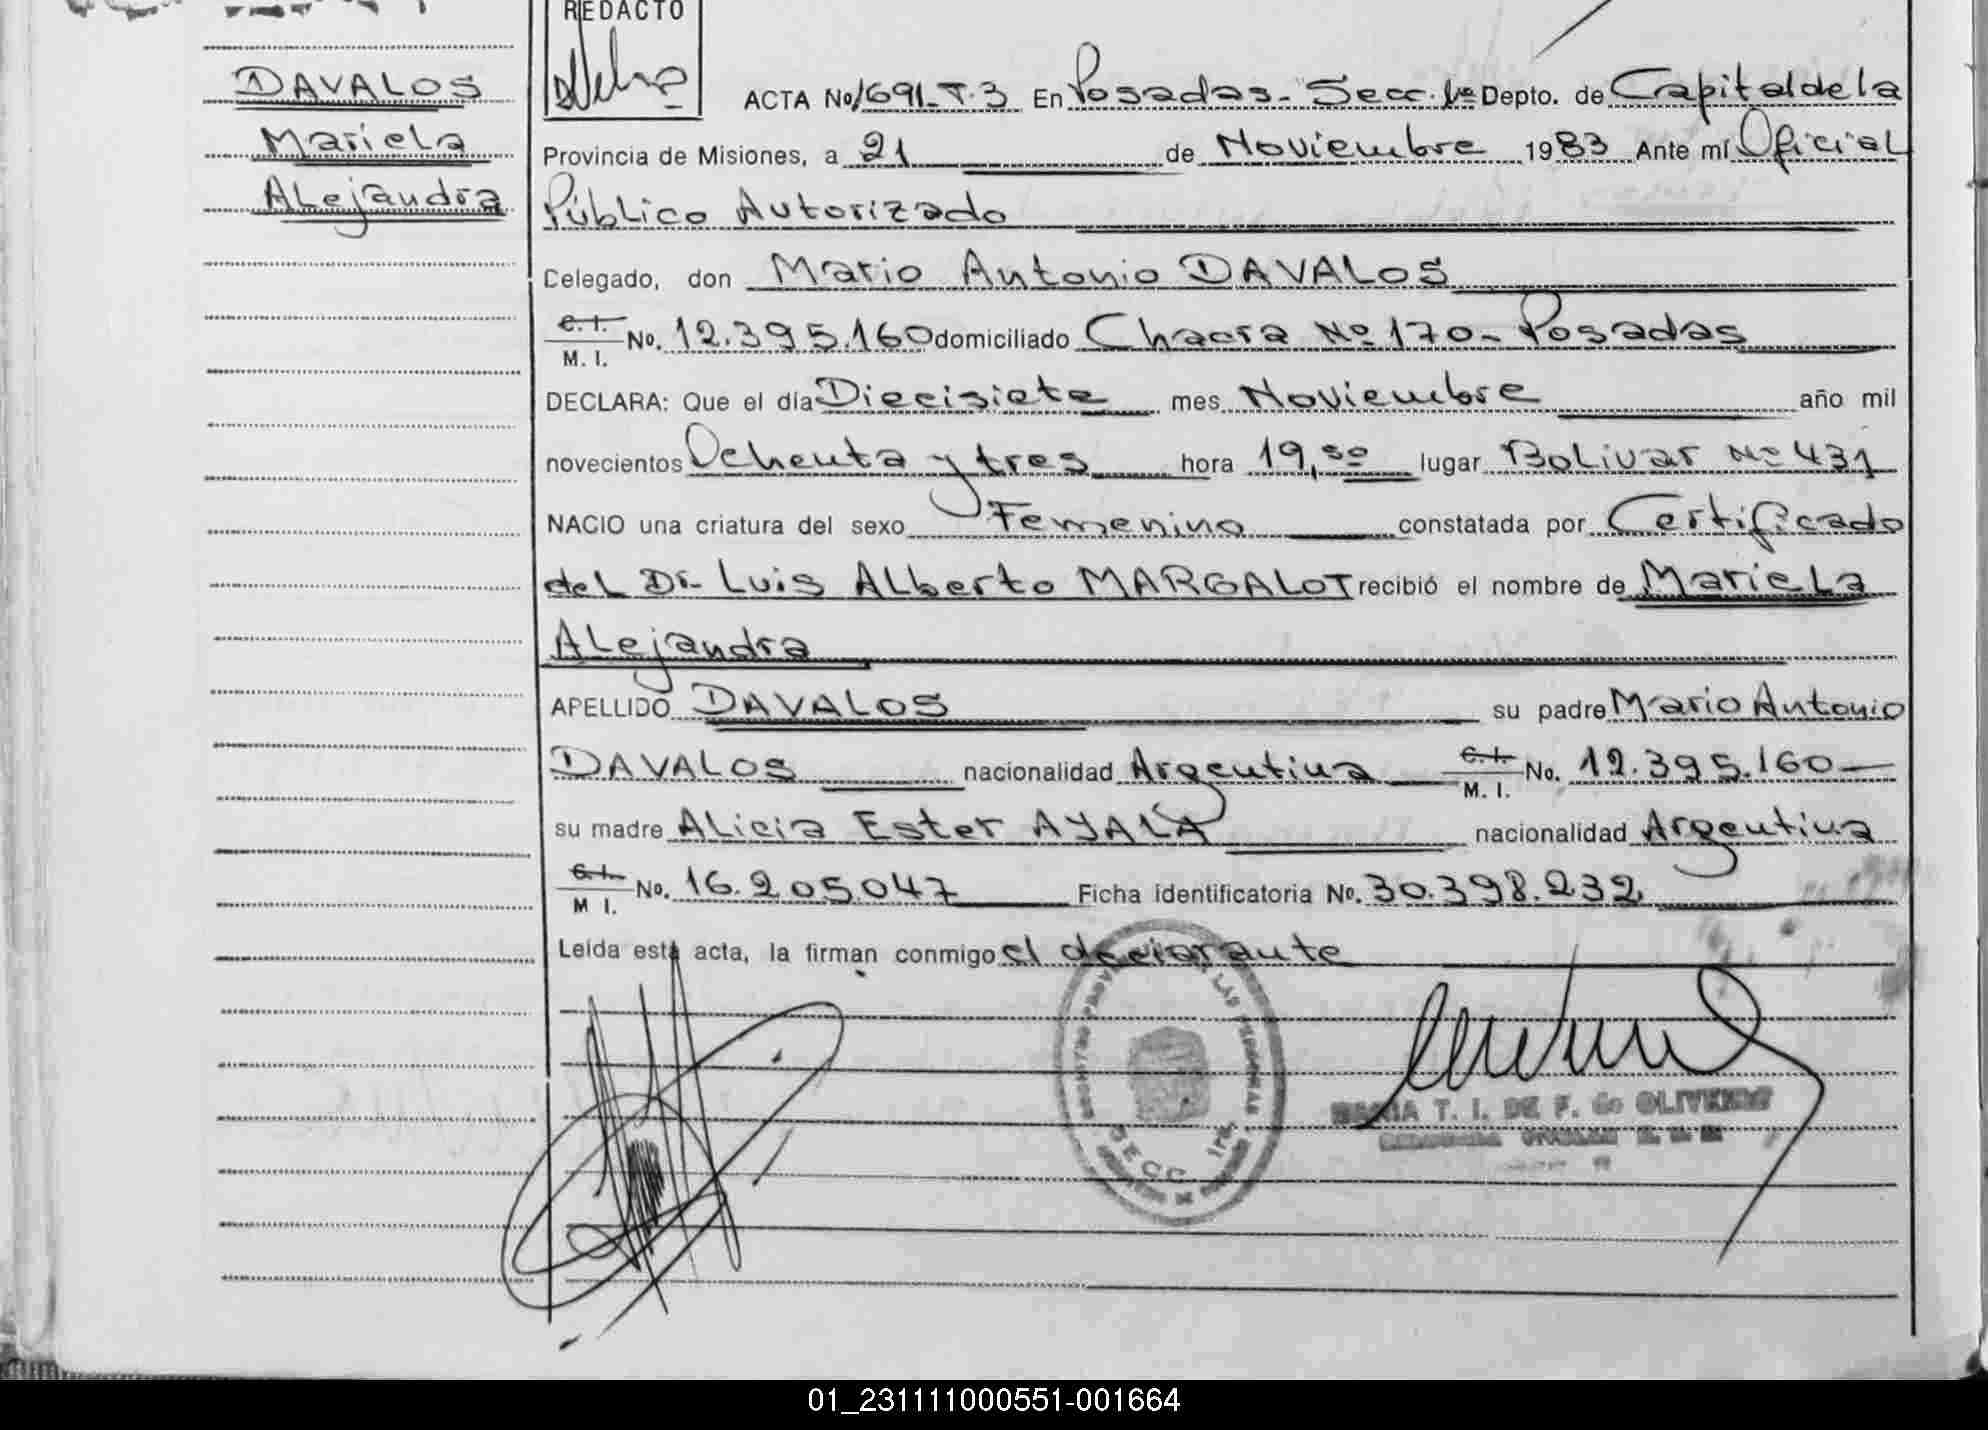 REDACTO
DAVALOS
Mariela
Alejandra
ACTA No 1691-T.3 En Posadas- Secc. 1a Depto. de Capital de la
Provincia de Misiones, a 21 de Noviembre 1983 Ante mí Oficial
Público Autorizado
Celegado, don Mario Antonio DAVALOS
C. I.
M. I. No. 12.395.160 domiciliado Chacra Nº 170- Posadas
DECLARA: Que el día Diecisiete mes Noviembre año mil
novecientos Ochenta y tres hora 19,50 lugar Bolivar Nº 431
NACIO una criatura del sexo Femenino constatada por Certificado
del Dr. Luis Alberto MARGALOT recibió el nombre de Mariela
Alejandra
APELLIDO DAVALOS su padre Mario Antonio
DAVALOS nacionalidad Argentina C. I.
M. I. No. 12.395.160
su madre Alicia Ester AYALA nacionalidad Argentina
C. I.
M I. No. 16.205.047 Ficha identificatoria No. 30.398.232
Leída esta acta, la firman conmigo el declarante
LAS PERSONAS
SECC. 1ra.
T. I. DE F. de OLIVEIRA
01_231111000551-001664